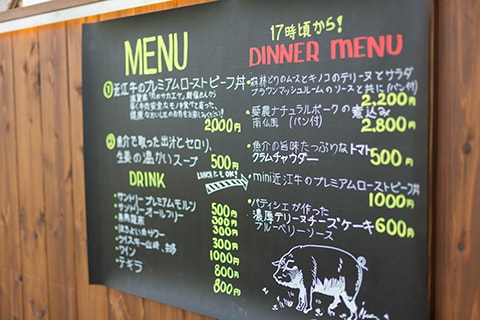 MENU
① 近江牛のプレミアムローストビーフ丼
2000円
② 魚介で取った出汁とセロリ、
生姜の温かいスープ 500円
DRINK
・サントリープレミアムモルツ 500円
・サントリーオールフリー
・黒烏龍茶 300円
300円
・ウイスキー山崎、 1000円
・ワイン 800円
・テキーラ 800円
17時頃から!
DINNER MENU
・森林どりのムースとキノコのテリーヌとサラダ
ブラウンマッシュルームのソースと共に(パン付)
2,200円
・愛農ナチュラルポークの煮込み
南仏風 (パン付) 2,800円
・魚介の旨味たっぷりなトマト
クラムチャウダー 500円
・mini近江牛のプレミアムローストビーフ丼
1000円
・パティシエが作った
濃厚テリーヌチーズケーキ 600円
ブルーベリーソース